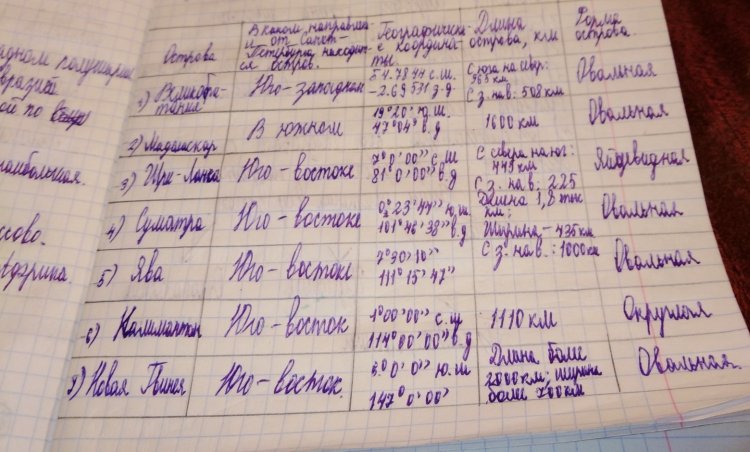 адном полушарии
вразией
ой по
наибольшая.
ссово.
Острова
В каком направлении от Санкт-
Петербурга находится остров.
Географические координаты.
Длина острова, км
Форма острова.
1) Великобритания
Юго-западном
54.7844 с.ш.
-2.69531 з.д
С юга на север:
965 км
С з. на в: 508 км
Овальная
2) Мадагаскар
В южном
19°20' ю.ш.
47°04' в.д
1600 км
Овальная
3) Шри-Ланка
Юго-востоке
7°0'00" с.ш
81°0'00" в.д
С севера на юг:
445 км
С з. на в. 225
Яйцевидная
4) Суматра
Юго-востоке
0°23'44" ю.ш.
101°46'38" в.д
Длина 1,8 тыс км:
Ширина - 435 км
Овальная
5) Ява
Юго-востоке
7°30'10"
111°15'47"
С з. на в.: 1000 км
Овальная
6) Калимантан
Юго-восток
1°00'00" с.ш
114°00'00" в.д
1110 км
Округлая
7) Новая Гвинея
Юго-восток.
147°0'00"
Длина боле
2000 км, ширина
боле 700 км
Овальная.